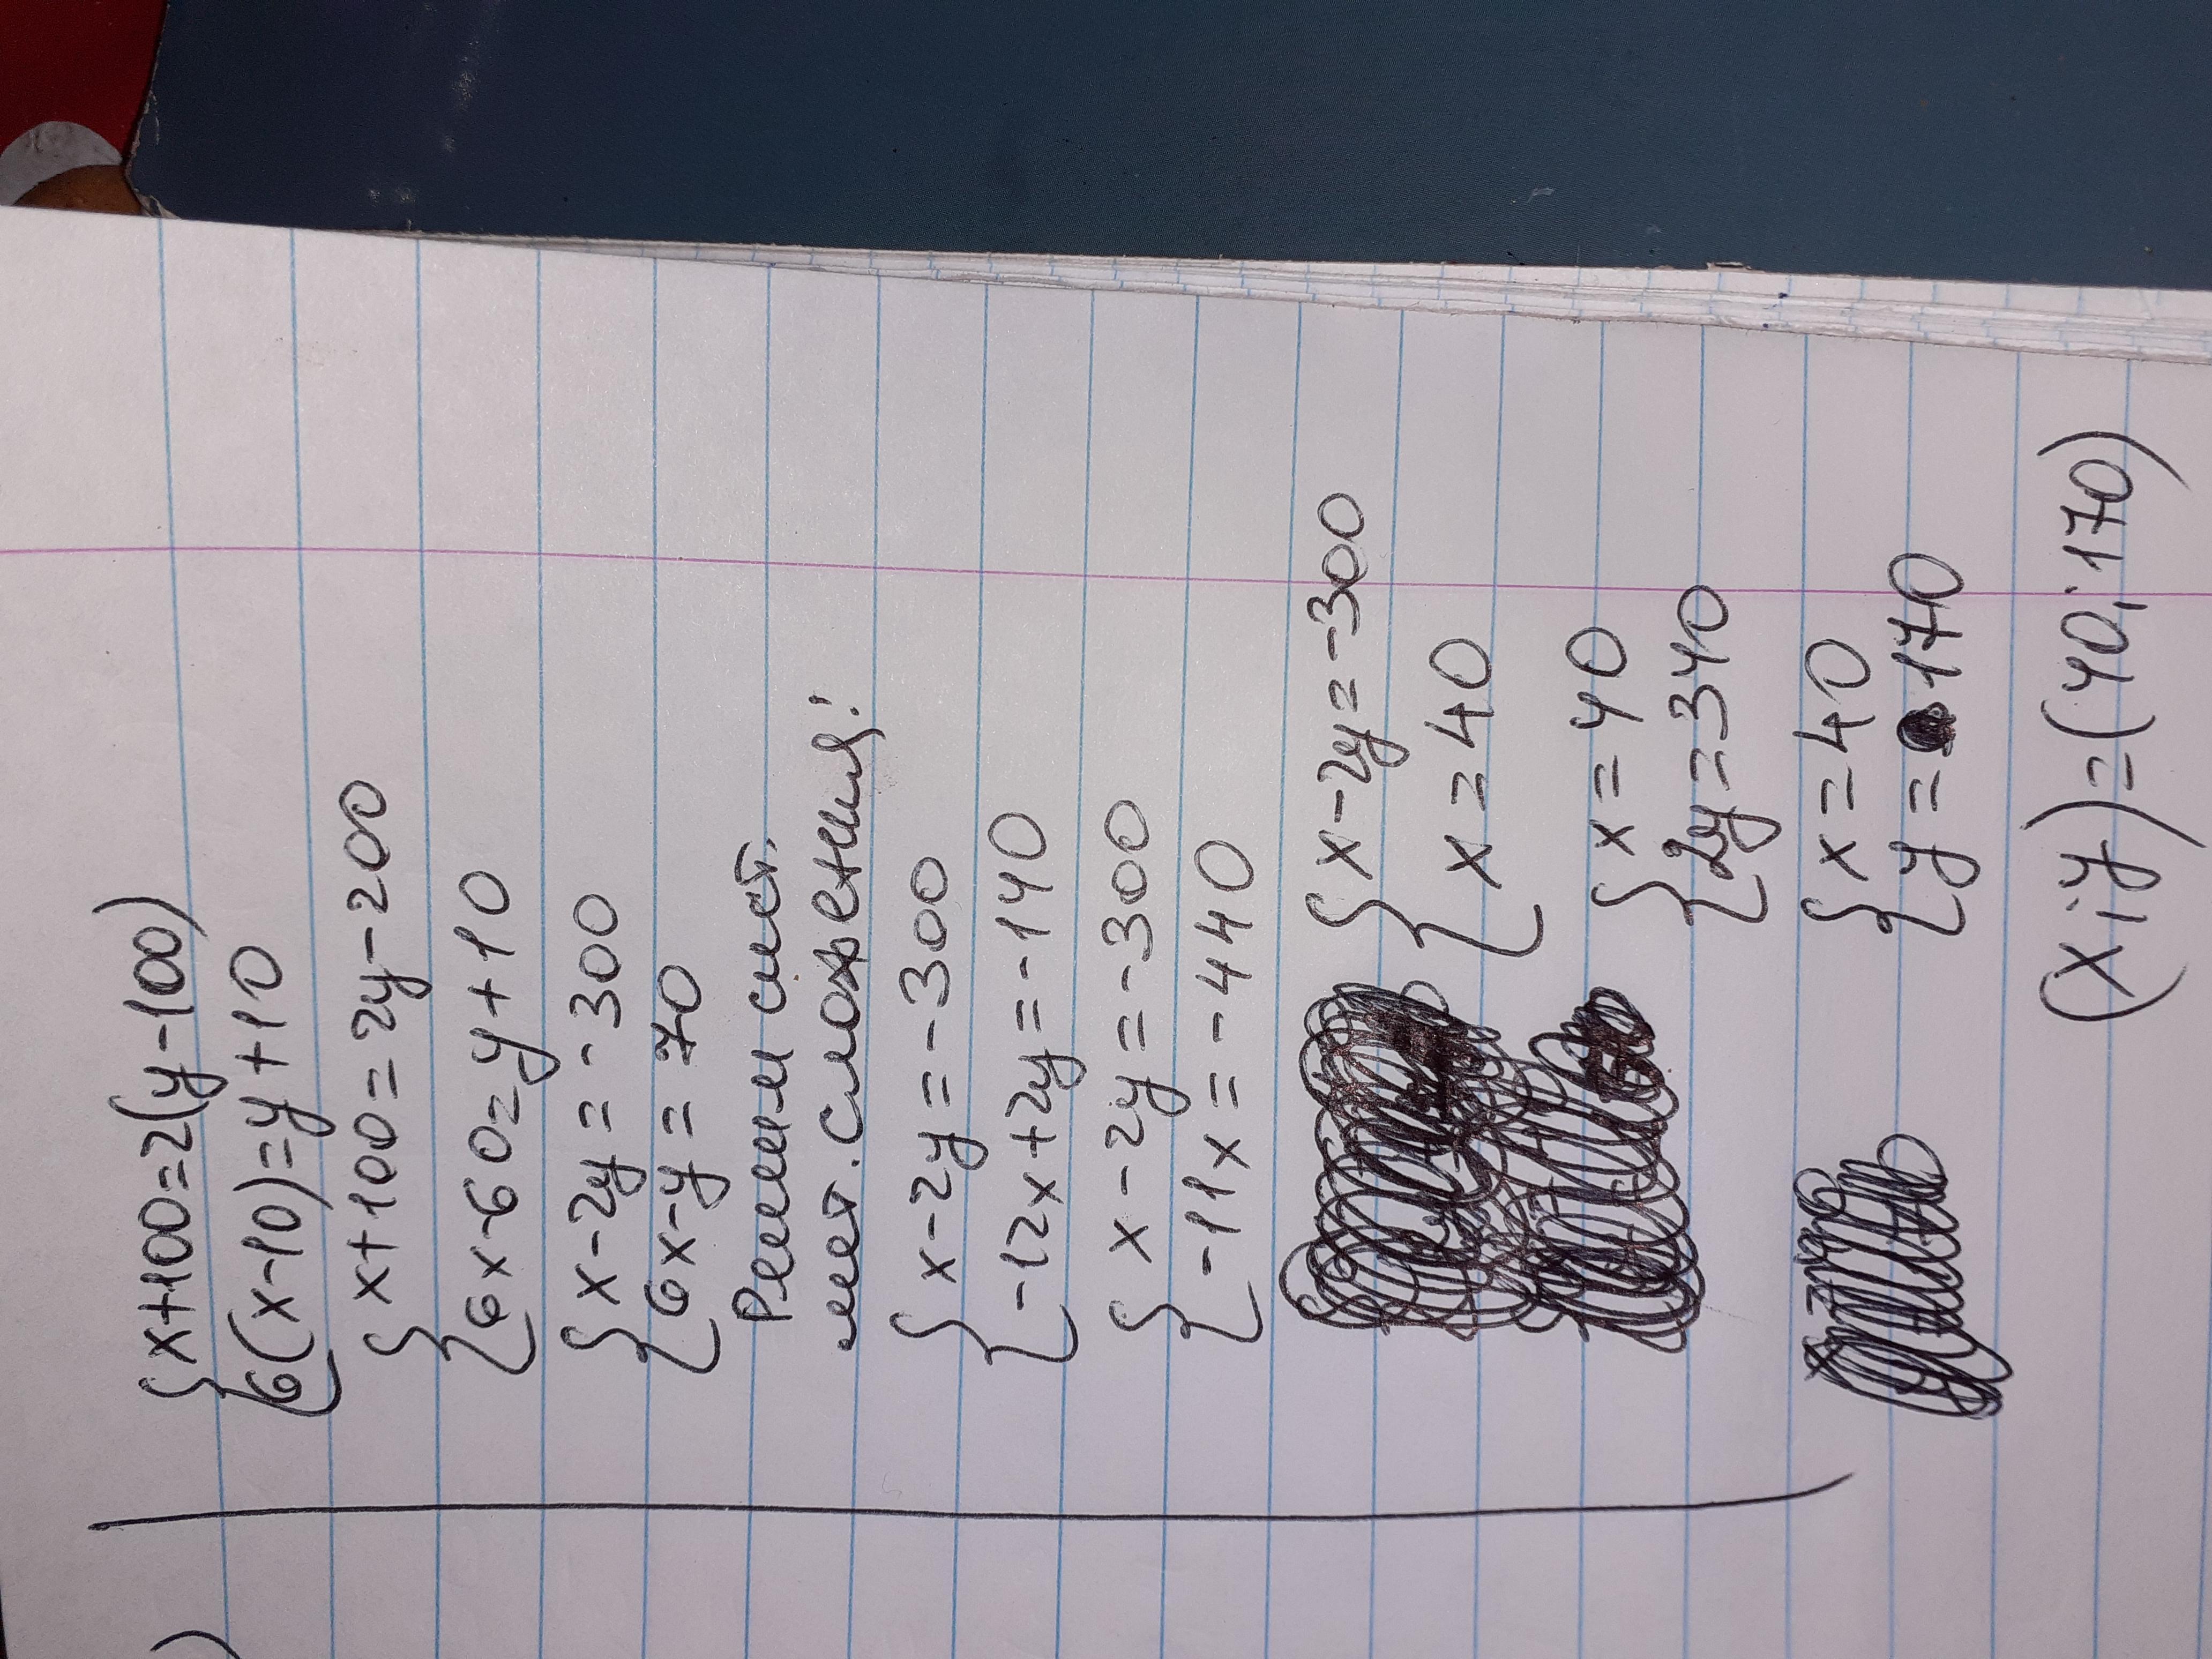 {x+100=2(y-100)
6(x-10)=y+10
{x+100=2y-200
6x-60=y+10
{x-2y=-300
6x-y=70
Решим сист.
мет. сложения:
{x-2y=-300
-12x+2y=-140
{x-2y=-300
-11x=-440
{x-2y=-300
x=40
{x=40
2y=340
{x=40
y=170
(x;y)=(40;170)